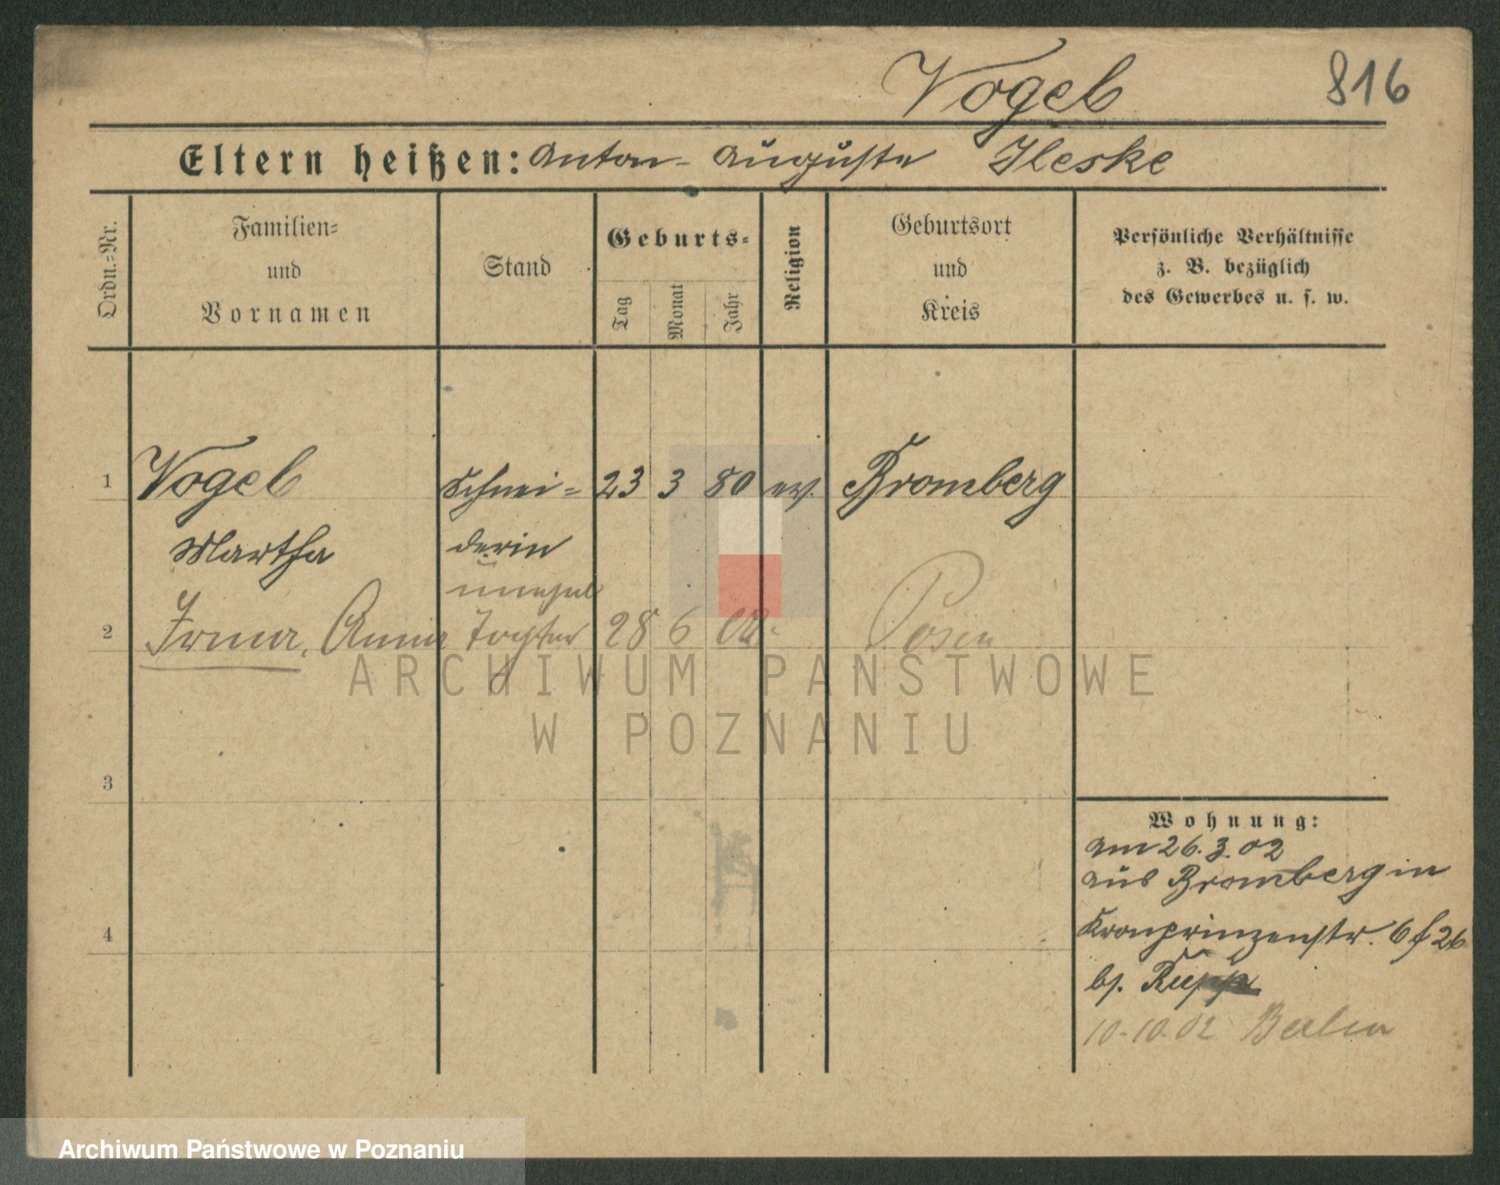 Vogel 816
Eltern heißen: Anton - Auguste Ileske
Ordn.-Nr.
Familien-
und
Vornamen
Stand
Geburts-
Tag
Monat
Jahr
Religion
Geburtsort
und
Kreis
Persönliche Verhältnisse
z. B. bezüglich
des Gewerbes u. s. w.
1 Vogel Schnei- 23 3 80 ev. Bromberg
Martha derin
unehel
2 Irma, Anna Tochter 28 6 02 Posen
ARCHIWUM PAŃSTWOWE
W POZNANIU
3
4
Wohnung:
am 26.3.02
aus Bromberg in
Kronprinzenstr. 6 f 26
bj.
10-10.02 Berlin
Archiwum Państwowe w Poznaniu